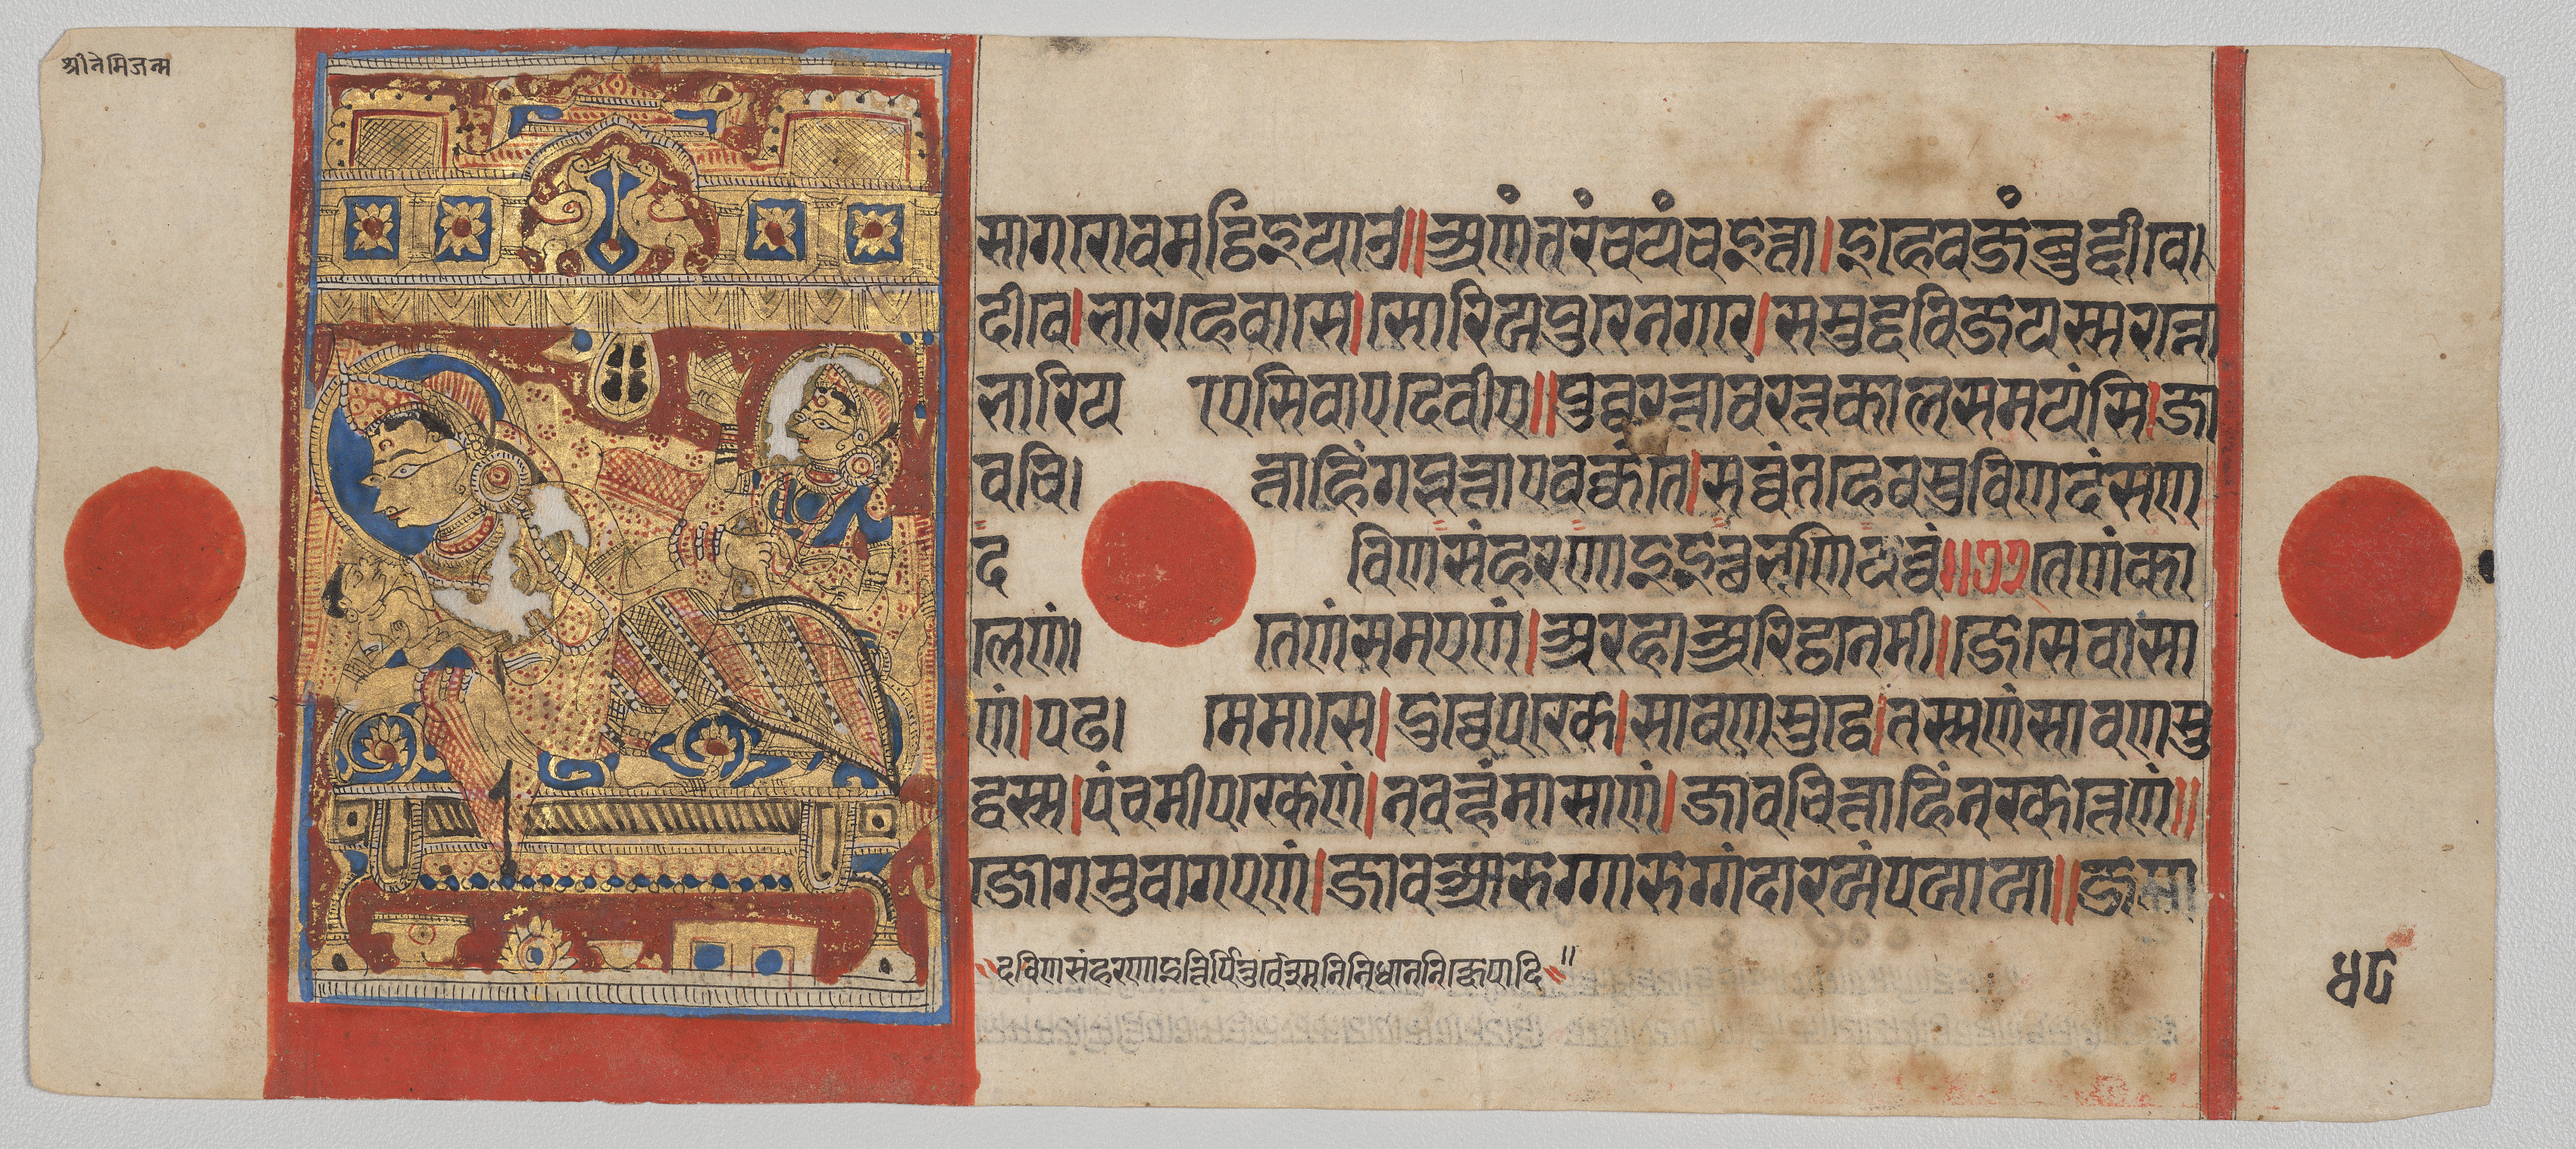 श्रीनेमिजन्म
सागरोवमट्ठिइयाउ॥अणंतरंचयंचइत्ता।इहेवजंबुद्दीवे
दीवे।भारहेवासे।सोरियपुरेनगरे।समुद्दविजयस्सरन्नो
भारियाएसिवाएदेवीए॥पुव्वरत्तावरत्तकालसमयंसि।जा
वचित्ताहिंगब्भत्ताएवक्कंते।सव्वंतहेवसुविणदंसण
दविणसंहरणाइइच्चभणियव्वं॥तेणंका
लेणं।तेणंसमएणं।अरहाअरिट्ठनेमी।जेसेवासा
णं।पढमेमासे।दुच्चेपरके।सावणसुद्धे।तस्सणंसावणसु
द्धस्स।पंचमीपरकेणं।नवन्हंमासाणं।जावचित्ताहिंनरकत्तेणं॥
जोगमुवागएणं।जावआरुग्गारुग्गंदारयंपयाया॥
दविणसंहरणाइत्तिपितुर्वेश्मनिनिधाननिक्षेपादि॥